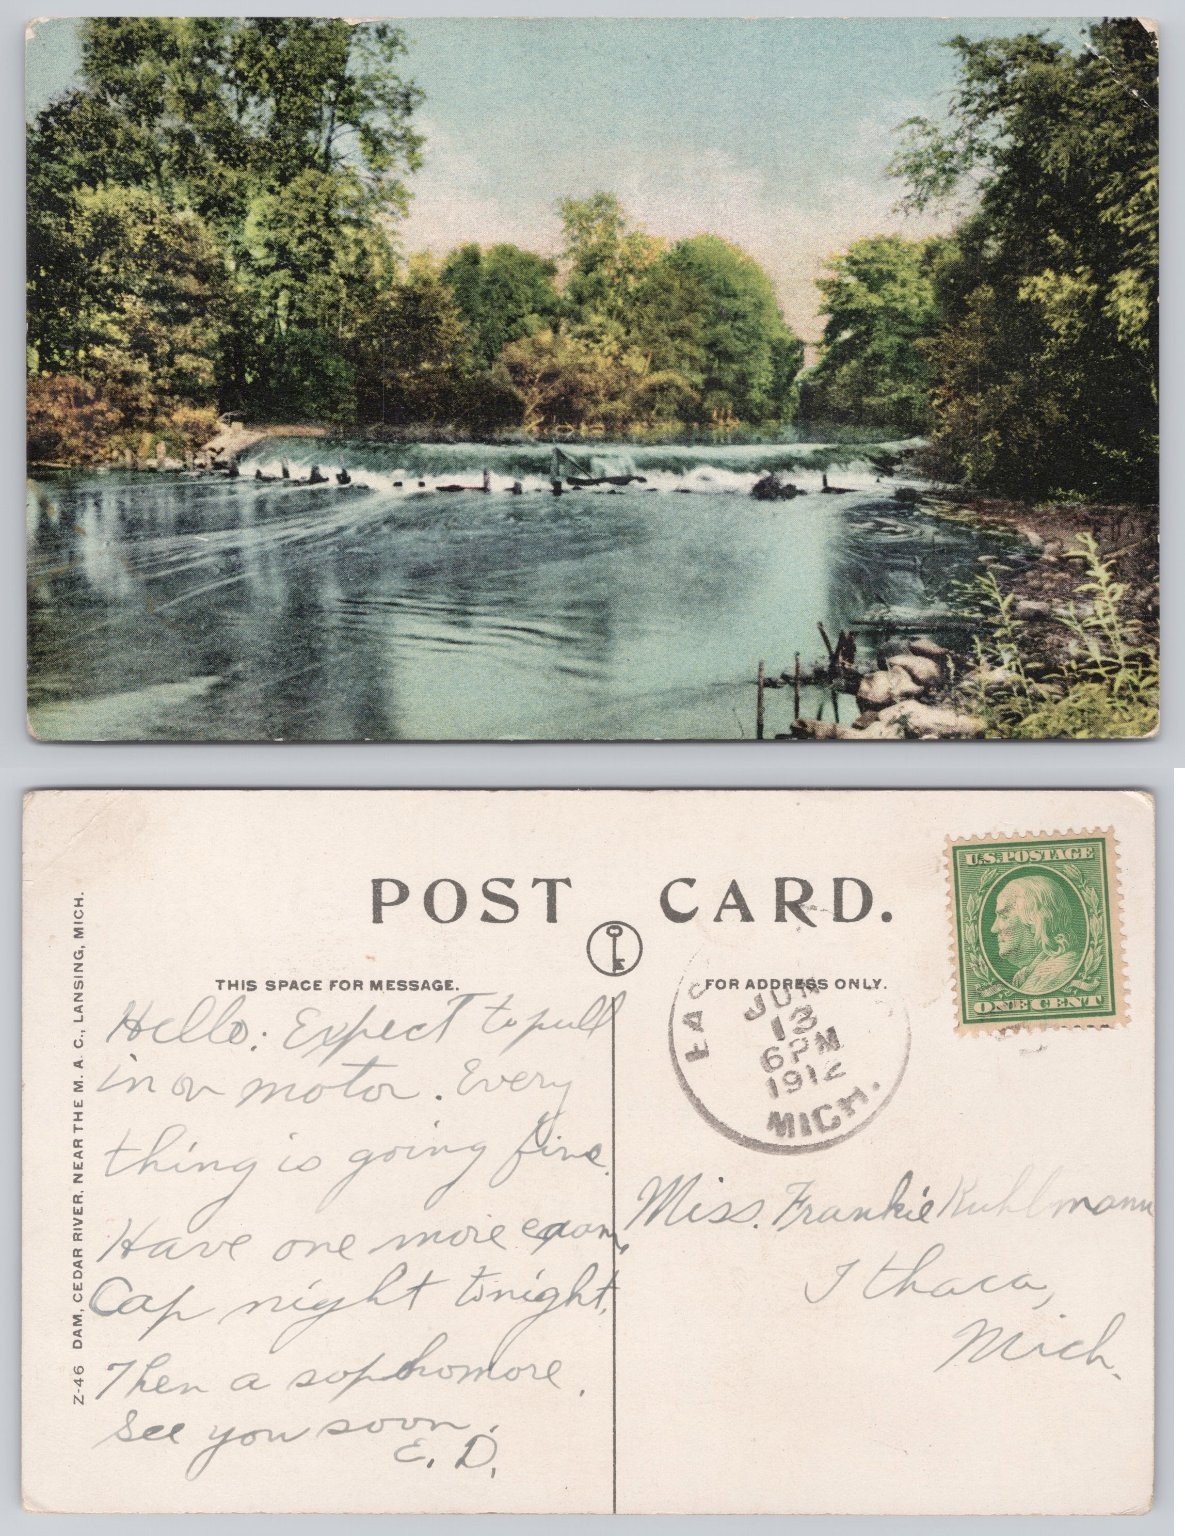 POST CARD.
THIS SPACE FOR MESSAGE.
FOR ADDRESS ONLY.
U.S. POSTAGE
ONE CENT
EAS
JUN
13
6 PM
1912
MICH.
Z-46 DAM, CEDAR RIVER, NEAR THE M. A. C., LANSING, MICH.
Hello: Expect to pull
in on motor. Every
thing is going fine.
Have one more exam,
Cap night tonight,
Then a sophomore.
See you soon.
E. D.
Miss. Frankie Kuhlmann
Ithaca,
Mich.